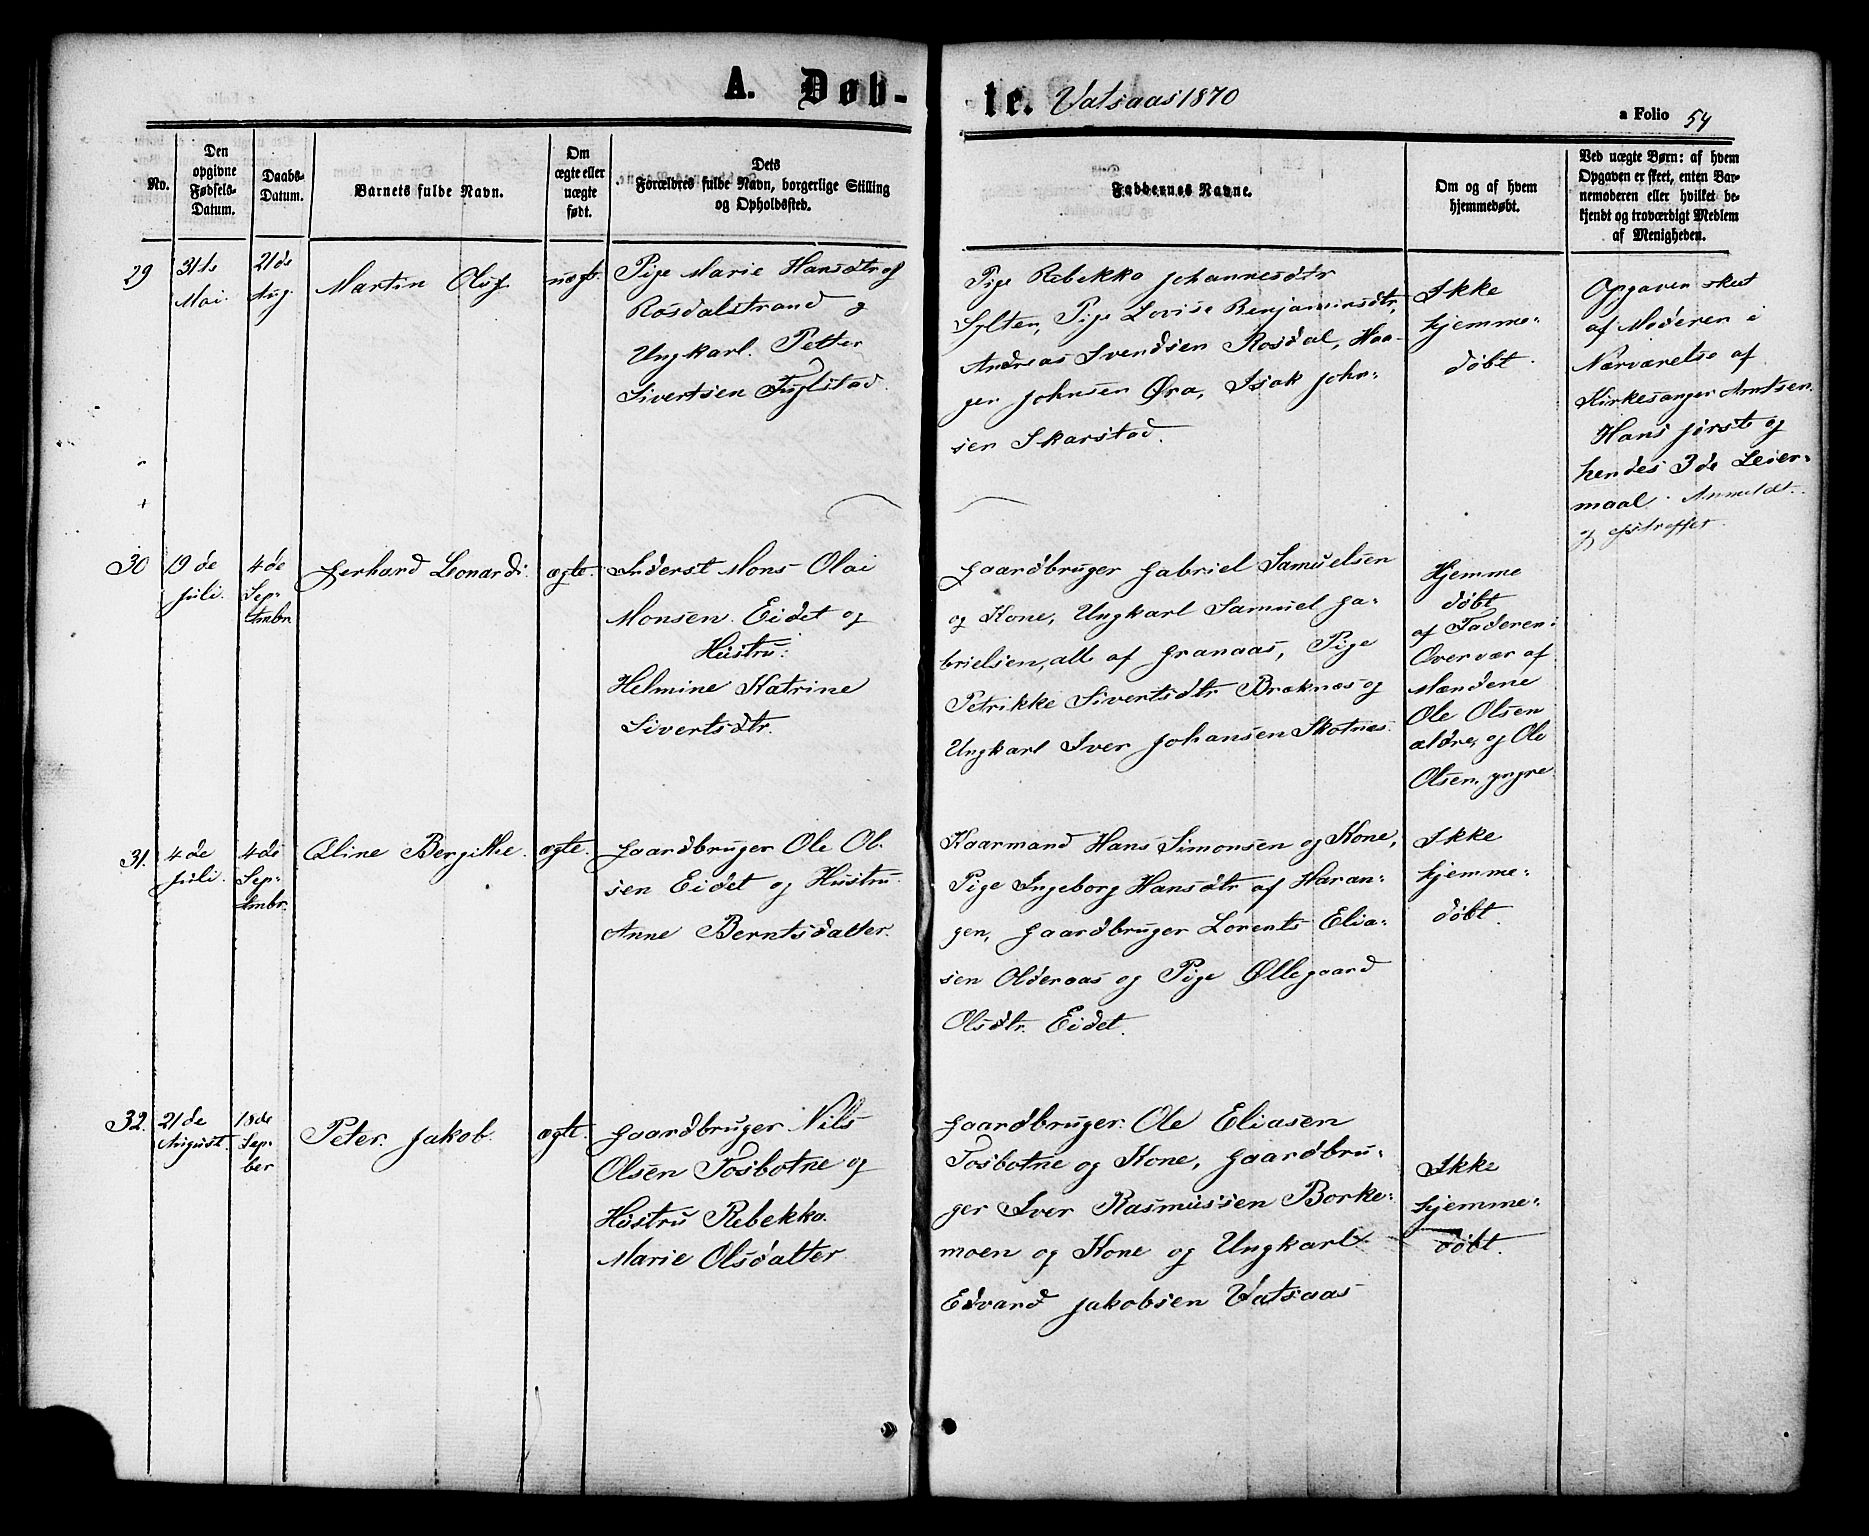 A. Døb-
te. Vatsaas 1870
a Folio 54
No.
Den
opgivne
Fødsels-
Datum.
Daabs-
Datum.
Barnets fulde Navn.
Om
ægte eller
uægte
født.
Dets
Forældres fulde Navn, borgerlige Stilling
og Opholdssted.
Faddernes Navne.
Om og af hvem
hjemmedøbt.
Ved uægte Børn: af hvem
Opgaven er skeet, enten Bar-
nemoderen eller hvilket be-
kjendt og troværdigt Medlem
af Menigheden.
29
31te
Mai.
21de
Aug.
Martin Oluf
uægt.
Pige Marie Hansdtr af
Rosdalstrand og
Ungkarl. Petter
Sivertsen Fuglstad.
Pige Rebekka Johannesdtr
Sylten, Pige Lovise Benjaminsdtr,
Andreas Svendsen Rosdal, Haa-
gen Johnsen Øra, Isak John-
sen Skarstad.
Ikke
hjemme-
døbt.
Opgaven skeet
af Moderen i
Nærværelse af
Kirkesanger Arntsen.
Hans første og
hendes 3de Leier-
maal. Anmeldt
og
30
19de
Juli.
4de
Sep-
tmbr.
Gerhard Leonardi.
ægte.
Inderst Mons Olai
Monsen Eidet og
Hustru:
Helmine Katrine
Sivertsdtr.
Gaardbruger Gabriel Samuelsen
og Kone, Ungkarl Samuel Ga-
brielsen, alle af Granaas, Pige
Petrikke Sivertsdtr Braknæs og
Ungkarl Iver Johansen Skotnæs.
Hjemme
døbt
af Faderen i
Overvær af
Mændene
Ole Olsen
ældre, og Ole
Olsen, yngre
31.
4de
Juli.
4de
Sep-
tmbr.
Oline Bergitte.
ægte.
Gaardbruger Ole Ol-
sen Eidet og Hustru
Anne Berntsdatter.
Kaarmand Hans Simonsen og Kone,
Pige Ingeborg Hansdtr af Haran-
gen, Gaardbruger Lorents Elia-
sen Olderaas og Pige Øllegaard
Olsdtr. Eidet.
Ikke
hjemme-
døbt.
32.
21de
August.
18de
Sep-
ber
Peter Jakob.
ægte.
Gaardbruger Nils
Olsen Tosbotne og
Hustru Rebekka
Marie Olsdatter.
Gaardbruger Ole Eliasen
Tosbotne og Kone, Gaardbru-
ger Iver Rasmussen Borke-
moen og Kone og Ungkarl
Edvard Jakobsen Vatsaas
Ikke
hjemme-
døbt.